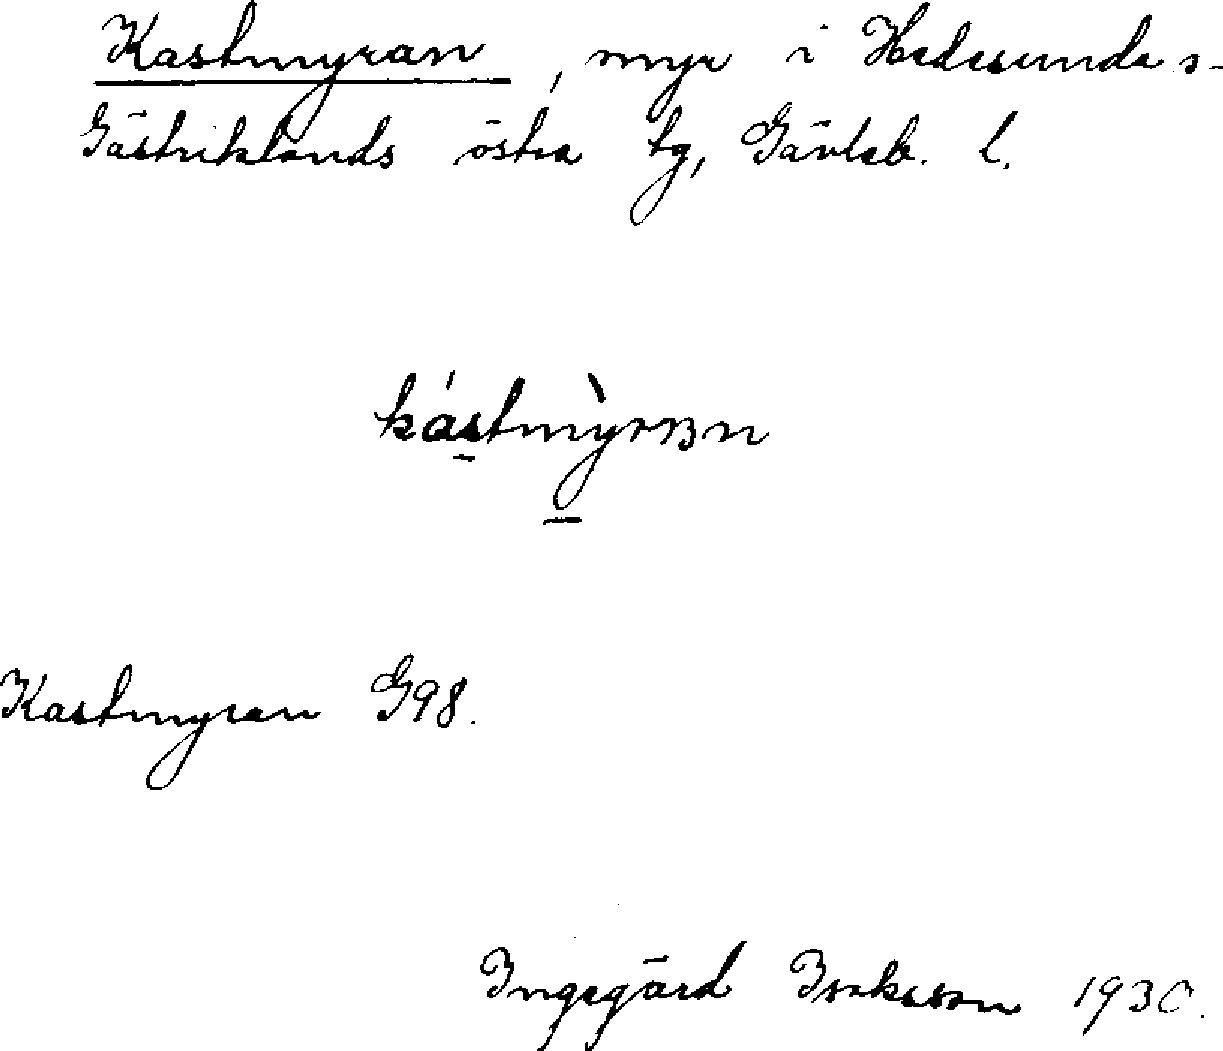 Kastmyran, myr i Hedesunda s-
Gästriklands östra tg, Gävleb. l.
kástmỳrɜn
Kastmyran G98.
Ingegärd Isaksson 1930.